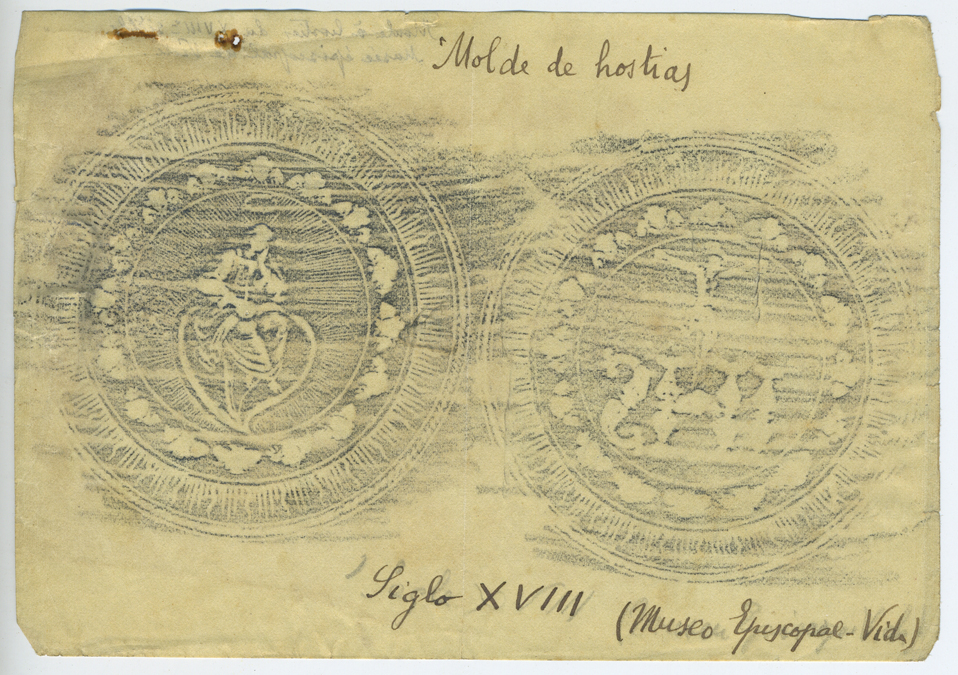 Molde de hostias
Siglo XVIII
(Museo Episcopal - Vich)